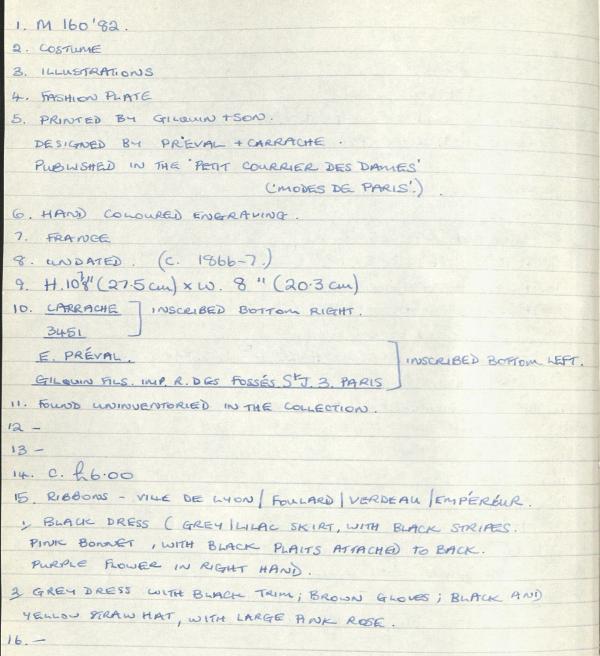 1. M 160'82.
2. COSTUME
3. ILLUSTRATIONS
4. FASHION PLATE
5. PRINTED BY GILQUIN + SON.
DESIGNED BY PRÉVAL + CARRACHE.
PUBLISHED IN THE 'PETIT COURRIER DES DAMES'
('MODES DE PARIS'.)
6. HAND COLOURED ENGRAVING.
7. FRANCE
8. UNDATED. (C. 1866-7.)
9. H. 10 7/8" (27.5 cm) x W. 8" (20.3 cm)
10. CARRACHE ] INSCRIBED BOTTOM RIGHT.
3451
E. PRÉVAL. ] INSCRIBED BOTTOM LEFT.
GILQUIN FILS. IMP. R. DES FOSSÉS St J. 3. PARIS
11. FOUND UNINVENTORIED IN THE COLLECTION.
12 -
13 -
14. C. £6.00
15. RIBBONS - VILLE DE LYON / FOULARD / VERDEAU / EMPÉREUR.
1/ BLACK DRESS (GREY / LILAC SKIRT, WITH BLACK STRIPES.
PINK BONNET, WITH BLACK PLAITS ATTACHED TO BACK.
PURPLE FLOWER IN RIGHT HAND.
2 GREY DRESS WITH BLACK TRIM; BROWN GLOVES; BLACK AND
YELLOW STRAW HAT, WITH LARGE PINK ROSE.
16. -